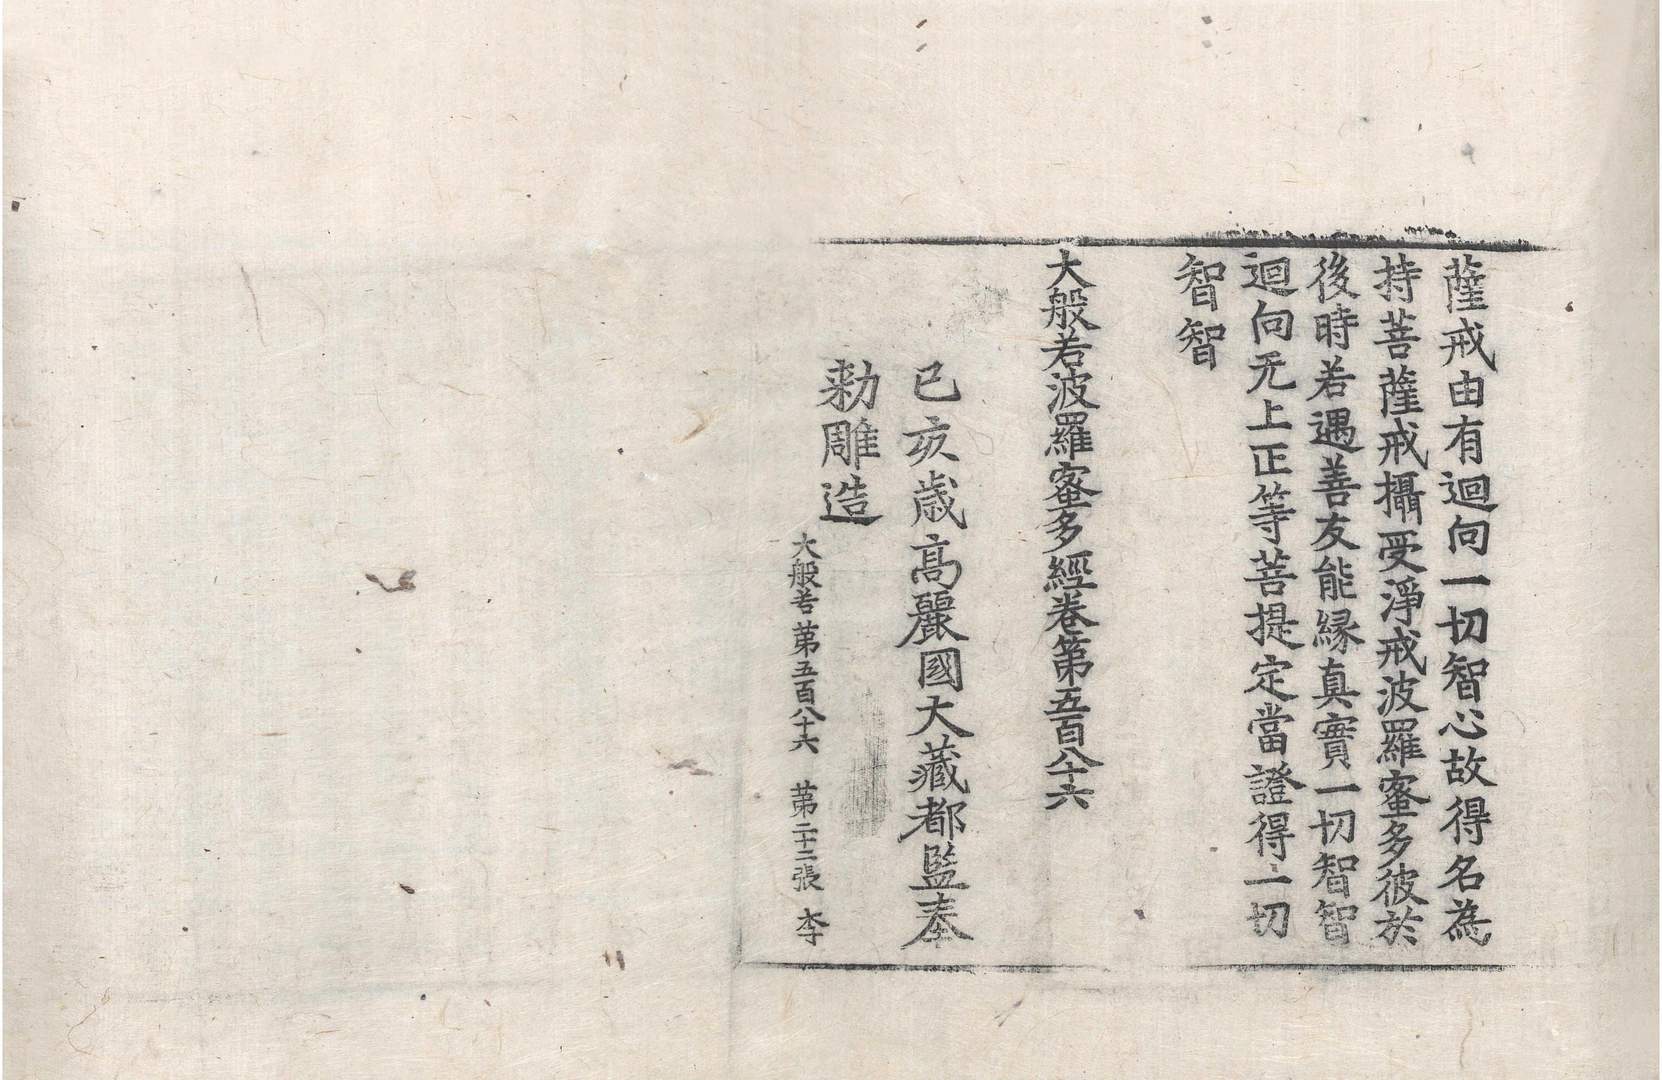 薩戒由有迴向一切智心故得名為
持菩薩戒攝受淨戒波羅蜜多彼於
後時若遇善友能縁真實一切智智
迴向无上正等菩提定當證得一切
智智
大般若波羅蜜多經卷第五百八十六
己亥歲高麗國大藏都監奉
勅雕造
大般若 第五百八十六 第二十二張 李